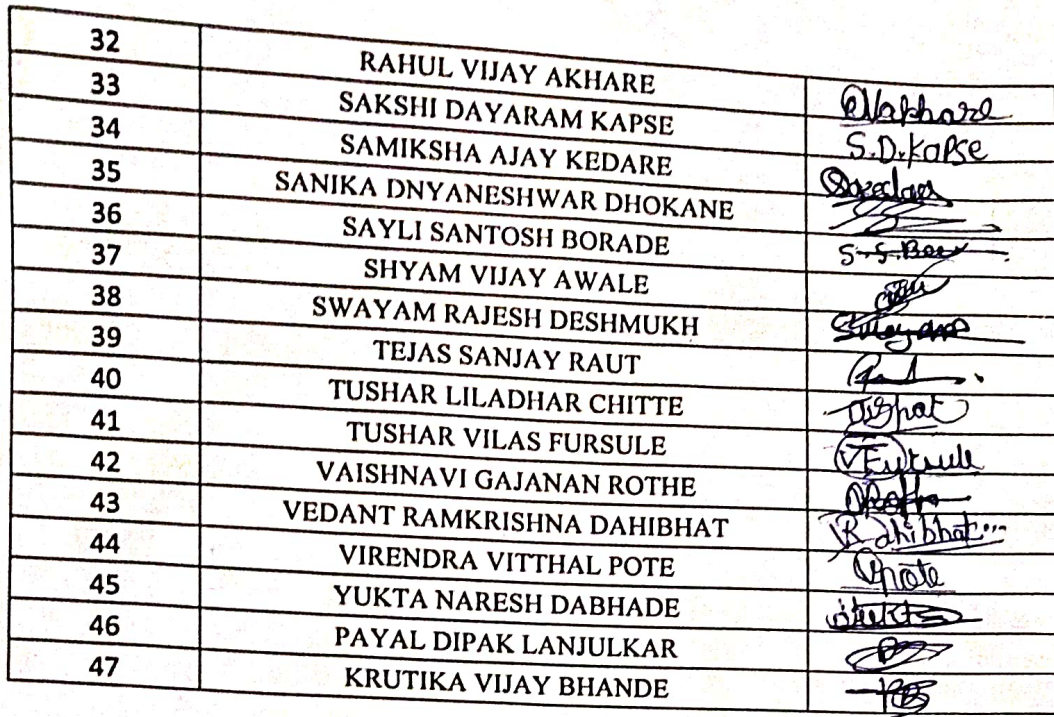 32 RAHUL VIJAY AKHARE
33 SAKSHI DAYARAM KAPSE S.D.Kapse
34 SAMIKSHA AJAY KEDARE
35 SANIKA DNYANESHWAR DHOKANE
36 SAYLI SANTOSH BORADE
37 SHYAM VIJAY AWALE
38 SWAYAM RAJESH DESHMUKH Swayam
39 TEJAS SANJAY RAUT
40 TUSHAR LILADHAR CHITTE
41 TUSHAR VILAS FURSULE
42 VAISHNAVI GAJANAN ROTHE
43 VEDANT RAMKRISHNA DAHIBHAT
44 VIRENDRA VITTHAL POTE Vpote
45 YUKTA NARESH DABHADE
46 PAYAL DIPAK LANJULKAR
47 KRUTIKA VIJAY BHANDE